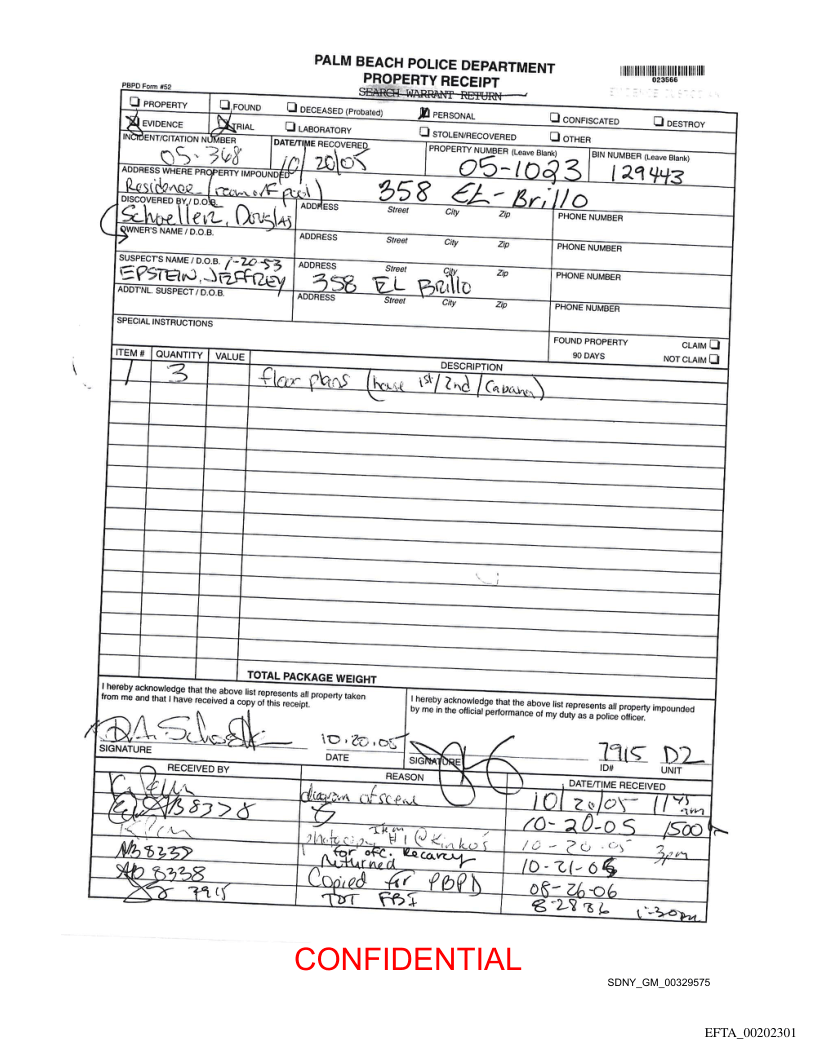 PALM BEACH POLICE DEPARTMENT
PROPERTY RECEIPT
SEARCH WARRANT RETURN
023566
PBPD Form #52
PROPERTY FOUND DECEASED (Probated) PERSONAL CONFISCATED DESTROY
EVIDENCE TRIAL LABORATORY STOLEN/RECOVERED OTHER
INCIDENT/CITATION NUMBER DATE/TIME RECOVERED PROPERTY NUMBER (Leave Blank) BIN NUMBER (Leave Blank)
05-368 10/20/05 05-1023 129443
ADDRESS WHERE PROPERTY IMPOUNDED
Residence (room off pool) 358 EL-Brillo
DISCOVERED BY / D.O.B. ADDRESS Street City Zip PHONE NUMBER
Schoeller, Douglas
OWNER'S NAME / D.O.B. ADDRESS Street City Zip PHONE NUMBER
SUSPECT'S NAME / D.O.B. 1-20-53 ADDRESS Street City Zip PHONE NUMBER
EPSTEIN, JEFFREY 358 EL Brillo
ADDT'NL. SUSPECT / D.O.B. ADDRESS Street City Zip PHONE NUMBER
SPECIAL INSTRUCTIONS
FOUND PROPERTY CLAIM
90 DAYS NOT CLAIM
ITEM # QUANTITY VALUE DESCRIPTION
1 3 floor plans (house 1st/2nd/Cabana)
TOTAL PACKAGE WEIGHT
I hereby acknowledge that the above list represents all property taken
from me and that I have received a copy of this receipt.
I hereby acknowledge that the above list represents all property impounded
by me in the official performance of my duty as a police officer.
10.20.05 7915 D2
SIGNATURE DATE SIGNATURE ID# UNIT
RECEIVED BY REASON DATE/TIME RECEIVED
diagram of scene 10/20/05
8378 10-20-05 1500
photocopy Item #1 @ Kinko's 10-20-05 3pm
for ofc. Recarey
8338 Returned 10-21-05
8338 Copied for PBPD 08-26-06
7915 TOT FBI 1:30pm
CONFIDENTIAL
SDNY_GM_00329575
EFTA_00202301